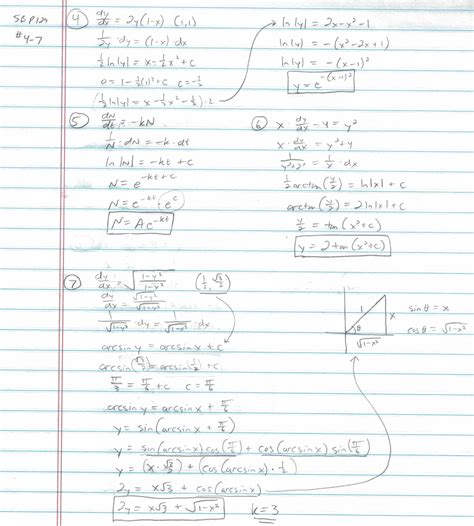 SE P129
#4-7
④ dy/dx = 2y(1-x) (1,1)
1/2y · dy = (1-x) · dx
½ ln|y| = x - ½x² + c
0 = 1 - ½(1)² + c c = -½
(½ ln|y| = x - ½x² - ½) · 2
ln|y| = 2x - x² - 1
ln|y| = -(x² - 2x + 1)
ln|y| = -(x-1)²
y = e^-(x-1)²
⑤ dN/dt = -kN
1/N · dN = -k · dt
ln|N| = -kt + c
N = e^-kt+c
N = e^-kt · e^c
N = Ae^-kt
⑥ x · dy/dx - 4 = y²
x · dy/dx = y² + 4
1/y²+2² = 1/x · dx
½ arctan(y/2) = ln|x| + c
arctan(y/2) = 2 ln|x| + c
y/2 = tan(x² + c)
y = 2 tan(x² + c)
⑦ dy/dx = √(1-y²/1-x²) (½, √3/2)
dy/dx = √1-y²/√1-x²
1/√1-y² · dy = 1/√1-x² · dx
arcsin y = arcsin x + c
arcsin(√3/2) = arcsin(½) + c
π/3 = π/6 + c c = π/6
arcsin y = arcsin x + π/6
y = sin(arcsin x + π/6)
y = sin(arcsin x) cos(π/6) + cos(arcsin x) sin(π/6)
y = (x · √3/2) + (cos(arcsin x) · ½)
2y = x√3 + cos(arcsin x)
2y = x√3 + √1-x²
k = 3
1
x
θ
√1-x²
sin θ = x
cos θ = √1-x²